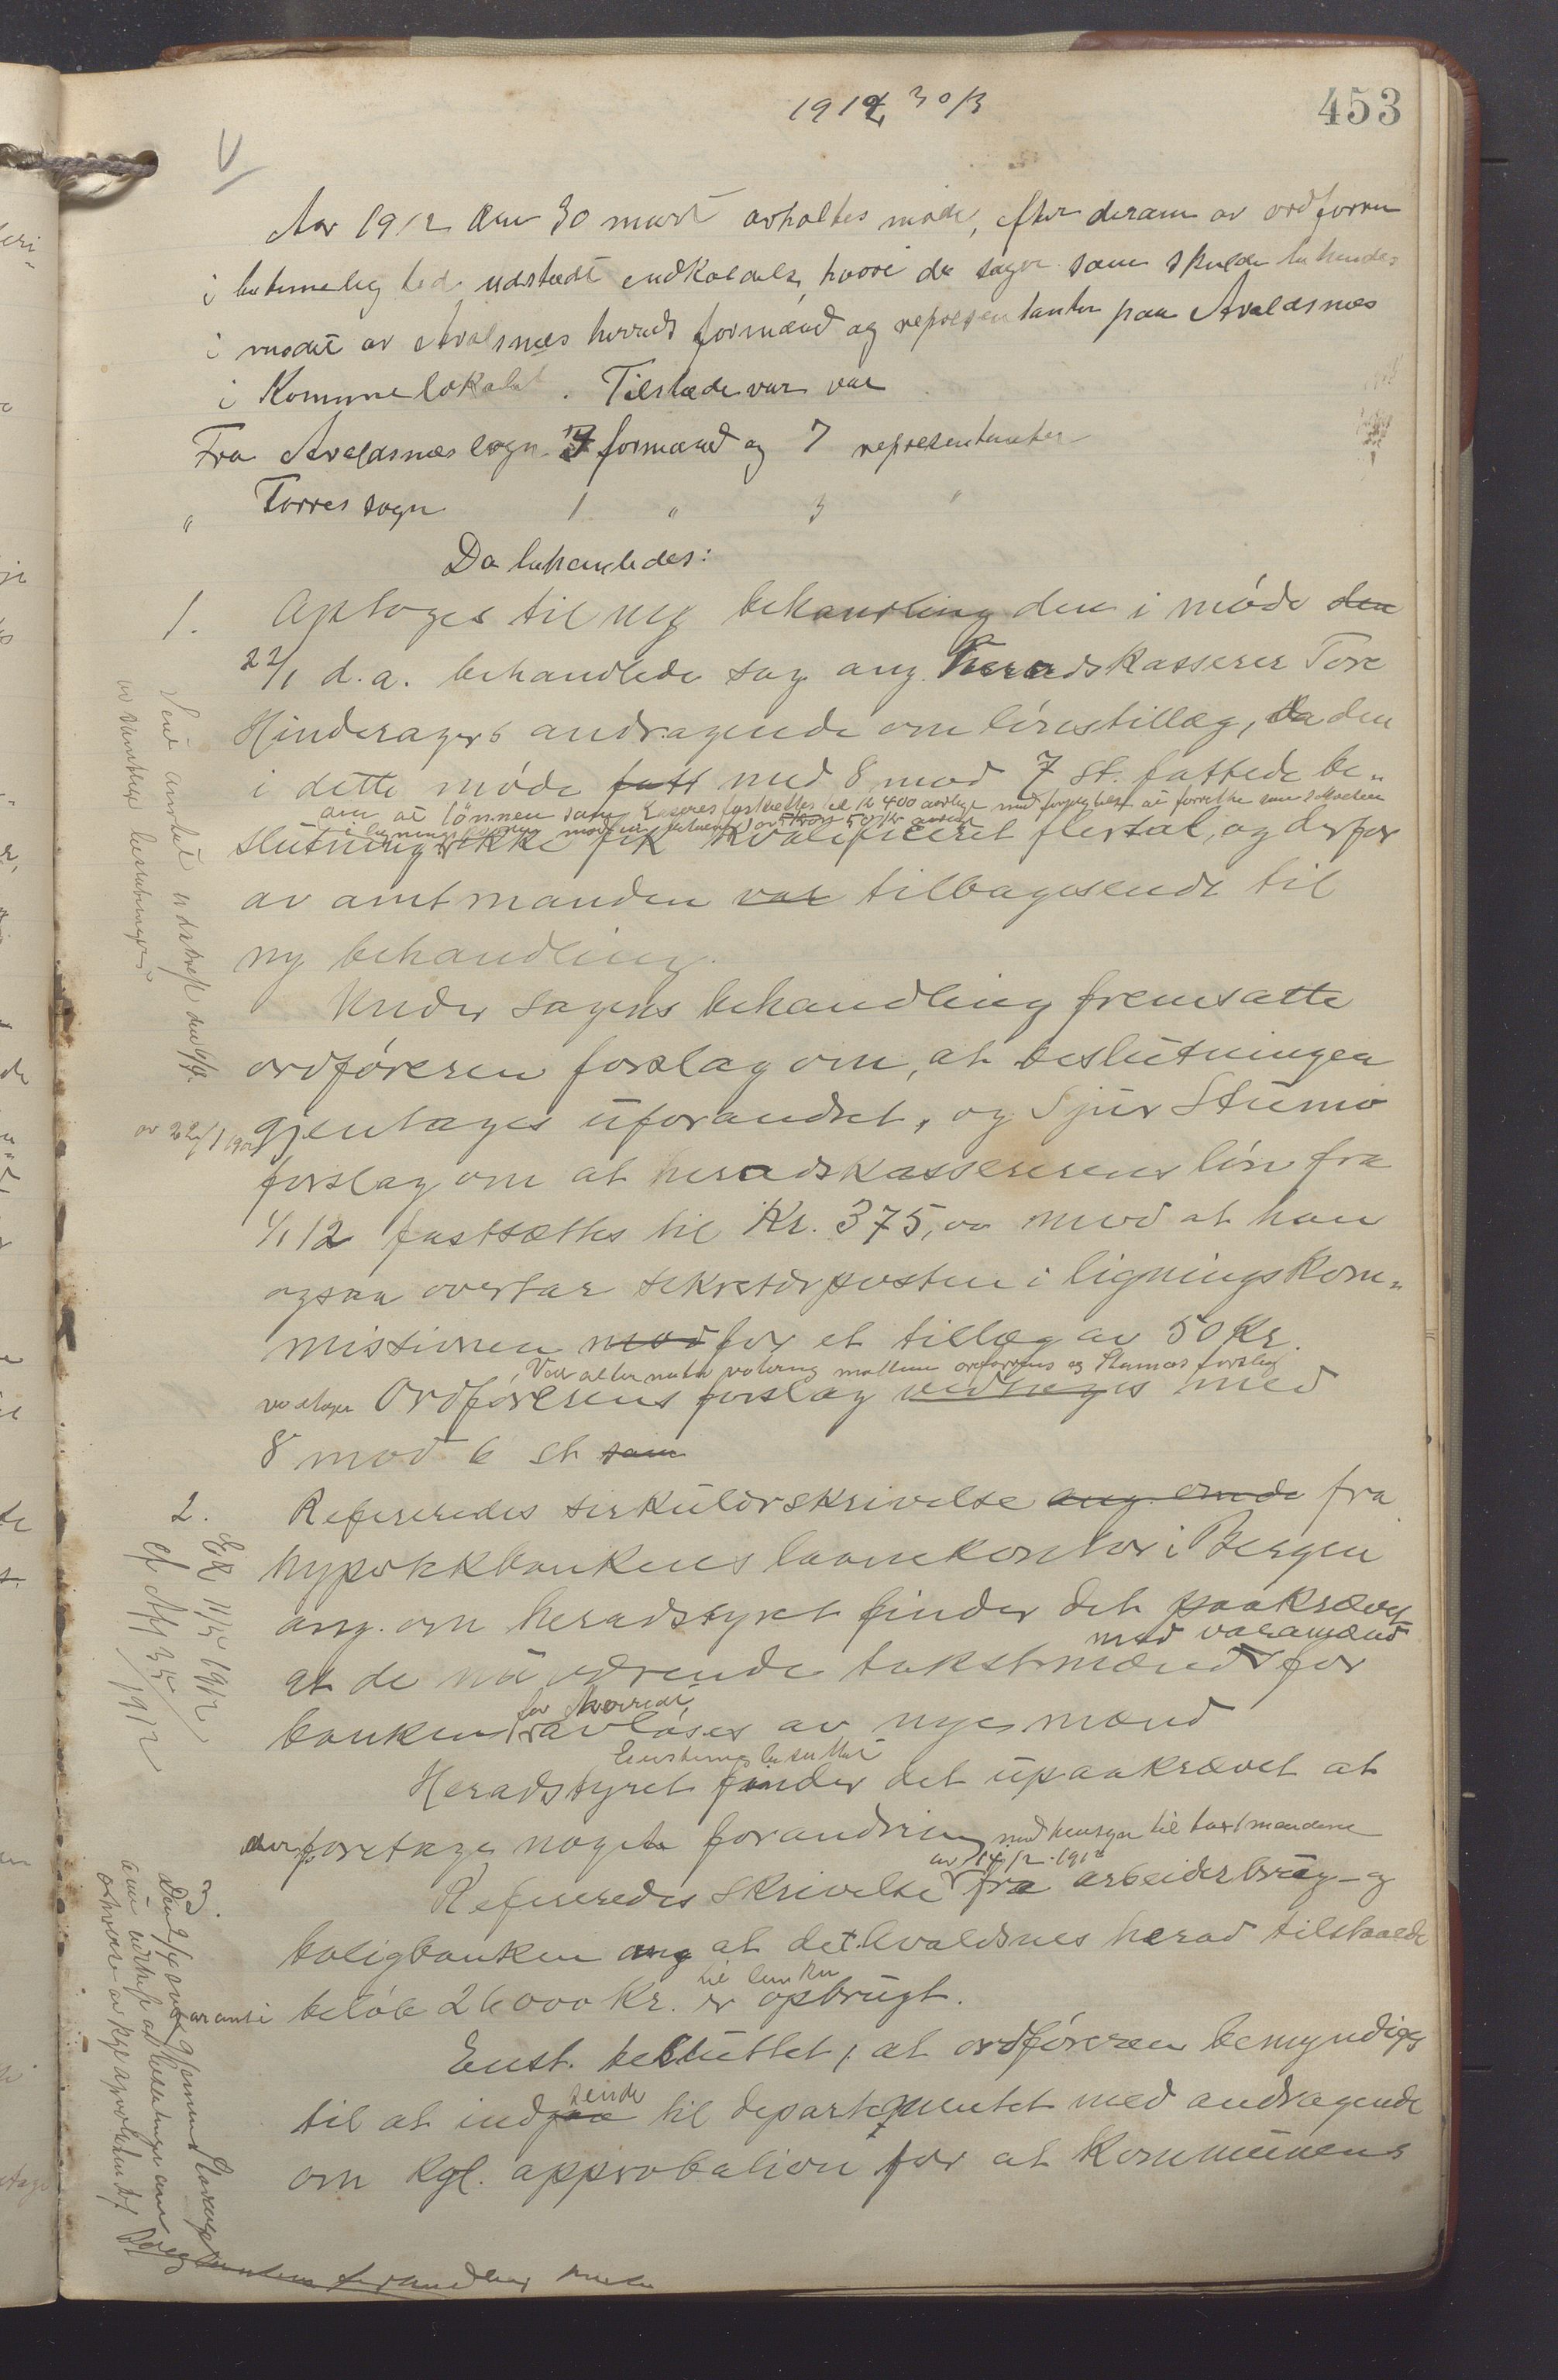 1912 30/3
453
V
Aar 1912 den 30 mars avholtes møde, efter dersom av ordføreren
i betimelig tid udstædt indkaldelse, hvori de sager som skulde behandles
i mødet av Avalsnes herreds formænd og repræsentanter paa Avaldsnes
i Kommunelokalet. Tilstæde var
Fra Avaldsnes sogn 4 formænd og 7 repræsentanter
" Torves sogn 1 " 3 "
Da behandledes:
1. Optoges til ny behandling den i møde den
22/1 d.a. behandlede sag ang. heradskasserer Tore
Hinderagers andragende om lönstillæg, da den
i dette møde fatt med 8 mod 7 st. fattede be-
om at lönnen som kasserer fastsættes til kr 400 aarlig med forpligtelse at forrette som sekretær
i ligningskommissionen mod en godtgjørelse av 50 kr aarlig
slutning ikke fik kvalificeret flertal, og derfor
av amtmanden var tilbagesendt til
ny behandling.
Under sagens behandling fremsatte
ordföreren forslag om, at beslutningen
av 22/1 1912 gjentages uforandret, og Sjur Stumo
forslag om at heradskassererens lön fra
1/1 12 fastsættes til Kr. 375,00 mod at han
ogsaa overtar sekretærposten i ligningskom-
missionen mod for et tillæg av 50 Kr.
Ved alternativ votering mellem ordførerens og Stumos forslag
vedtages Ordförerens forslag vedtoges med
8 mod 6 st som
Sendt amtet udskrift den 9/4
av samtlige beslutninger
2. Refereredes sirkulærskrivelse ang. ende fra
hypotekbankens laanekontor i Bergen
ang. om heradstyret finder det paakrævet
med varamænd
at de nuværende takstmænd for
for Herredet
banken avløses av nye mænd
Enstemmig besluttet
Heradstyret finder det upaakrævet at
der foretage nogen forandring med hensyn til taxtmændene
Ex 11/5 1912
cf Afs 35/1912
3. Refereredes skrivelse av 14/2 1912 fra arbeiderbrug- og
boligbanken ang at det Avaldsnes herad tilstaaede
garanti beløb 26000 Kr. til banken er opbrugt.
Enst. besluttet, at ordföreren bemyndiges
til at indgaa sende til departementet med andragende
om kgl. approbation for at Kommunens